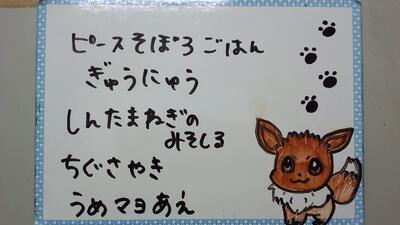 ピースそぼろごはん
ぎゅうにゅう
しんたまねぎの
みそしる
ちぐさやき
うめマヨあえ